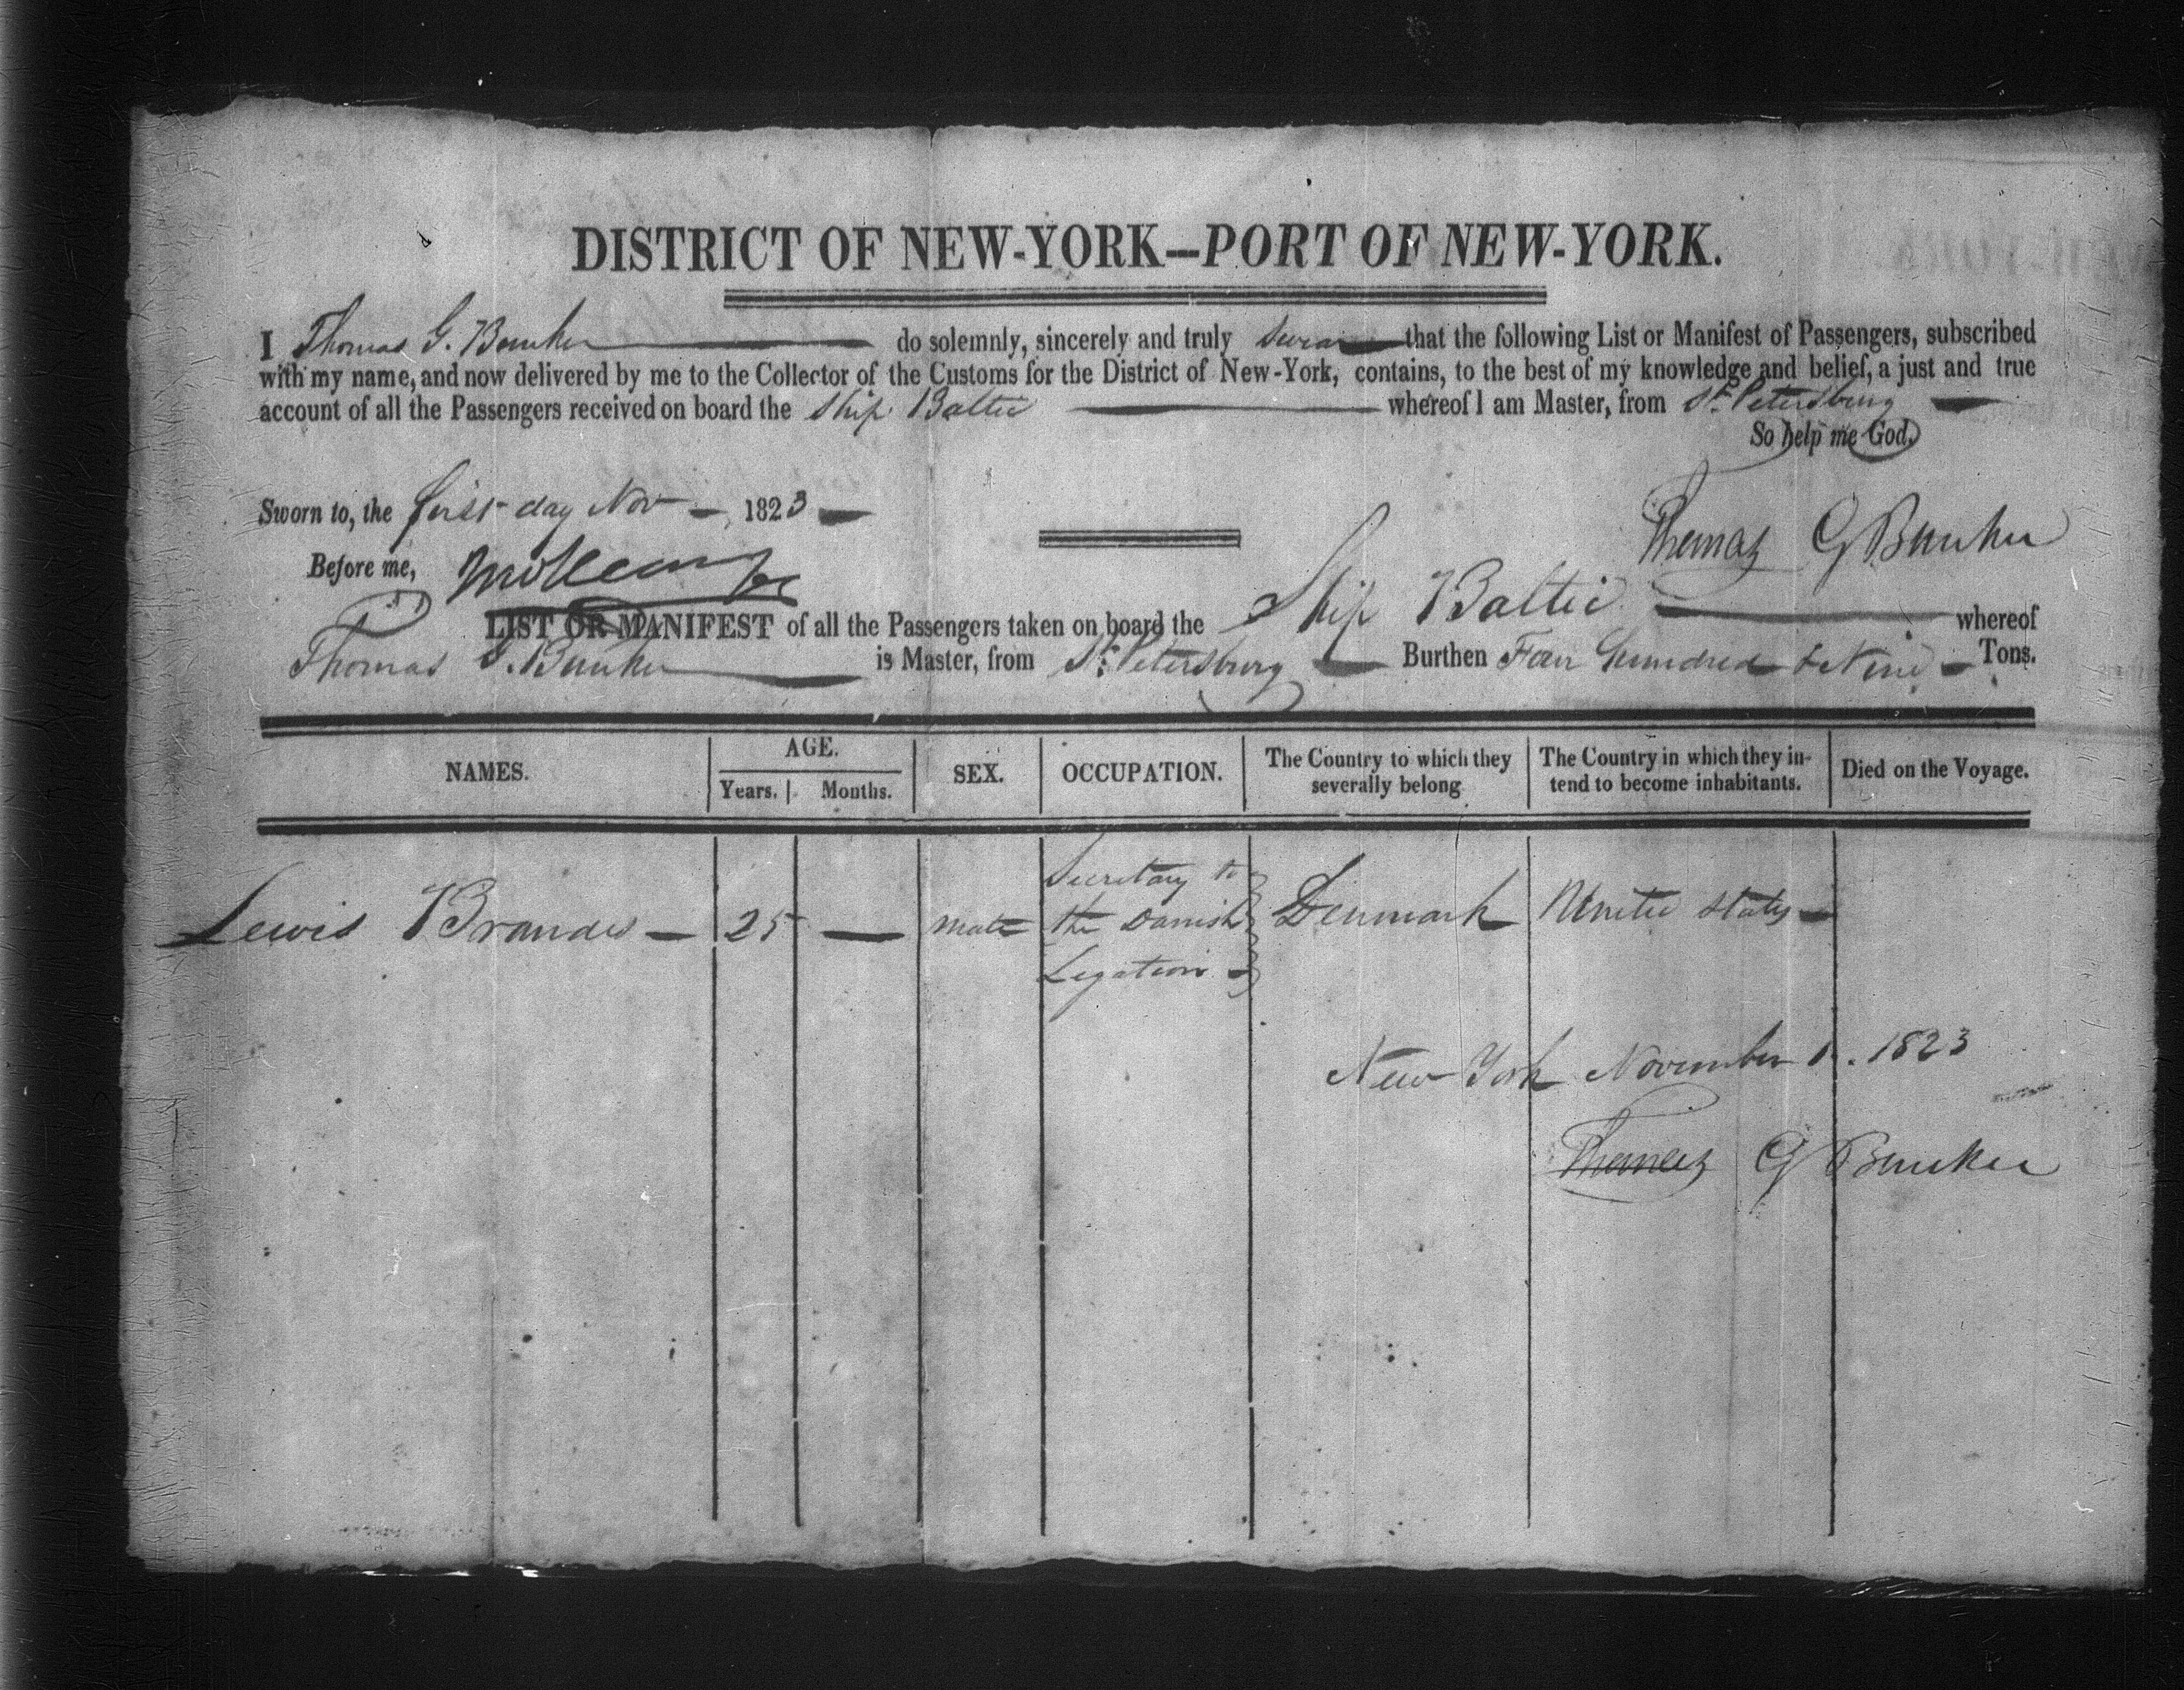 DISTRICT OF NEW-YORK—PORT OF NEW-YORK.
I Thomas G. Bunker do solemnly, sincerely and truly swear that the following List or Manifest of Passengers, subscribed
with my name, and now delivered by me to the Collector of the Customs for the District of New-York, contains, to the best of my knowledge and belief, a just and true
account of all the Passengers received on board the Ship Baltic whereof I am Master, from St. Petersburg
So help me God.
Sworn to, the first day Nov 1823
Thomas G Bunker
Before me,
LIST OR MANIFEST of all the Passengers taken on board the Ship Baltic whereof
Thomas G. Bunker is Master, from St. Petersburg Burthen Four Hundred & Nine Tons.
NAMES. AGE. SEX. OCCUPATION. The Country to which they severally belong The Country in which they in-tend to become inhabitants. Died on the Voyage.
Years. Months.
Lewis Brandis — 25 — male Secretary to the Danish Legation Denmark United States
New York November 1. 1823
Thomas G Bunker